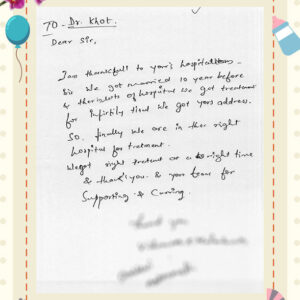 TO - Dr. Khot.
Dear Sir,
I am thankfull to your's hospitalities
Sir we got married 10 year before
& there lots of hospital we got treatment
for infirtily that we got yors address.
So, finally we are in the right
hospital for tretment.
we got right tretent at a right time
& thank's you. & your team for
Supporting & Curring.
thank you